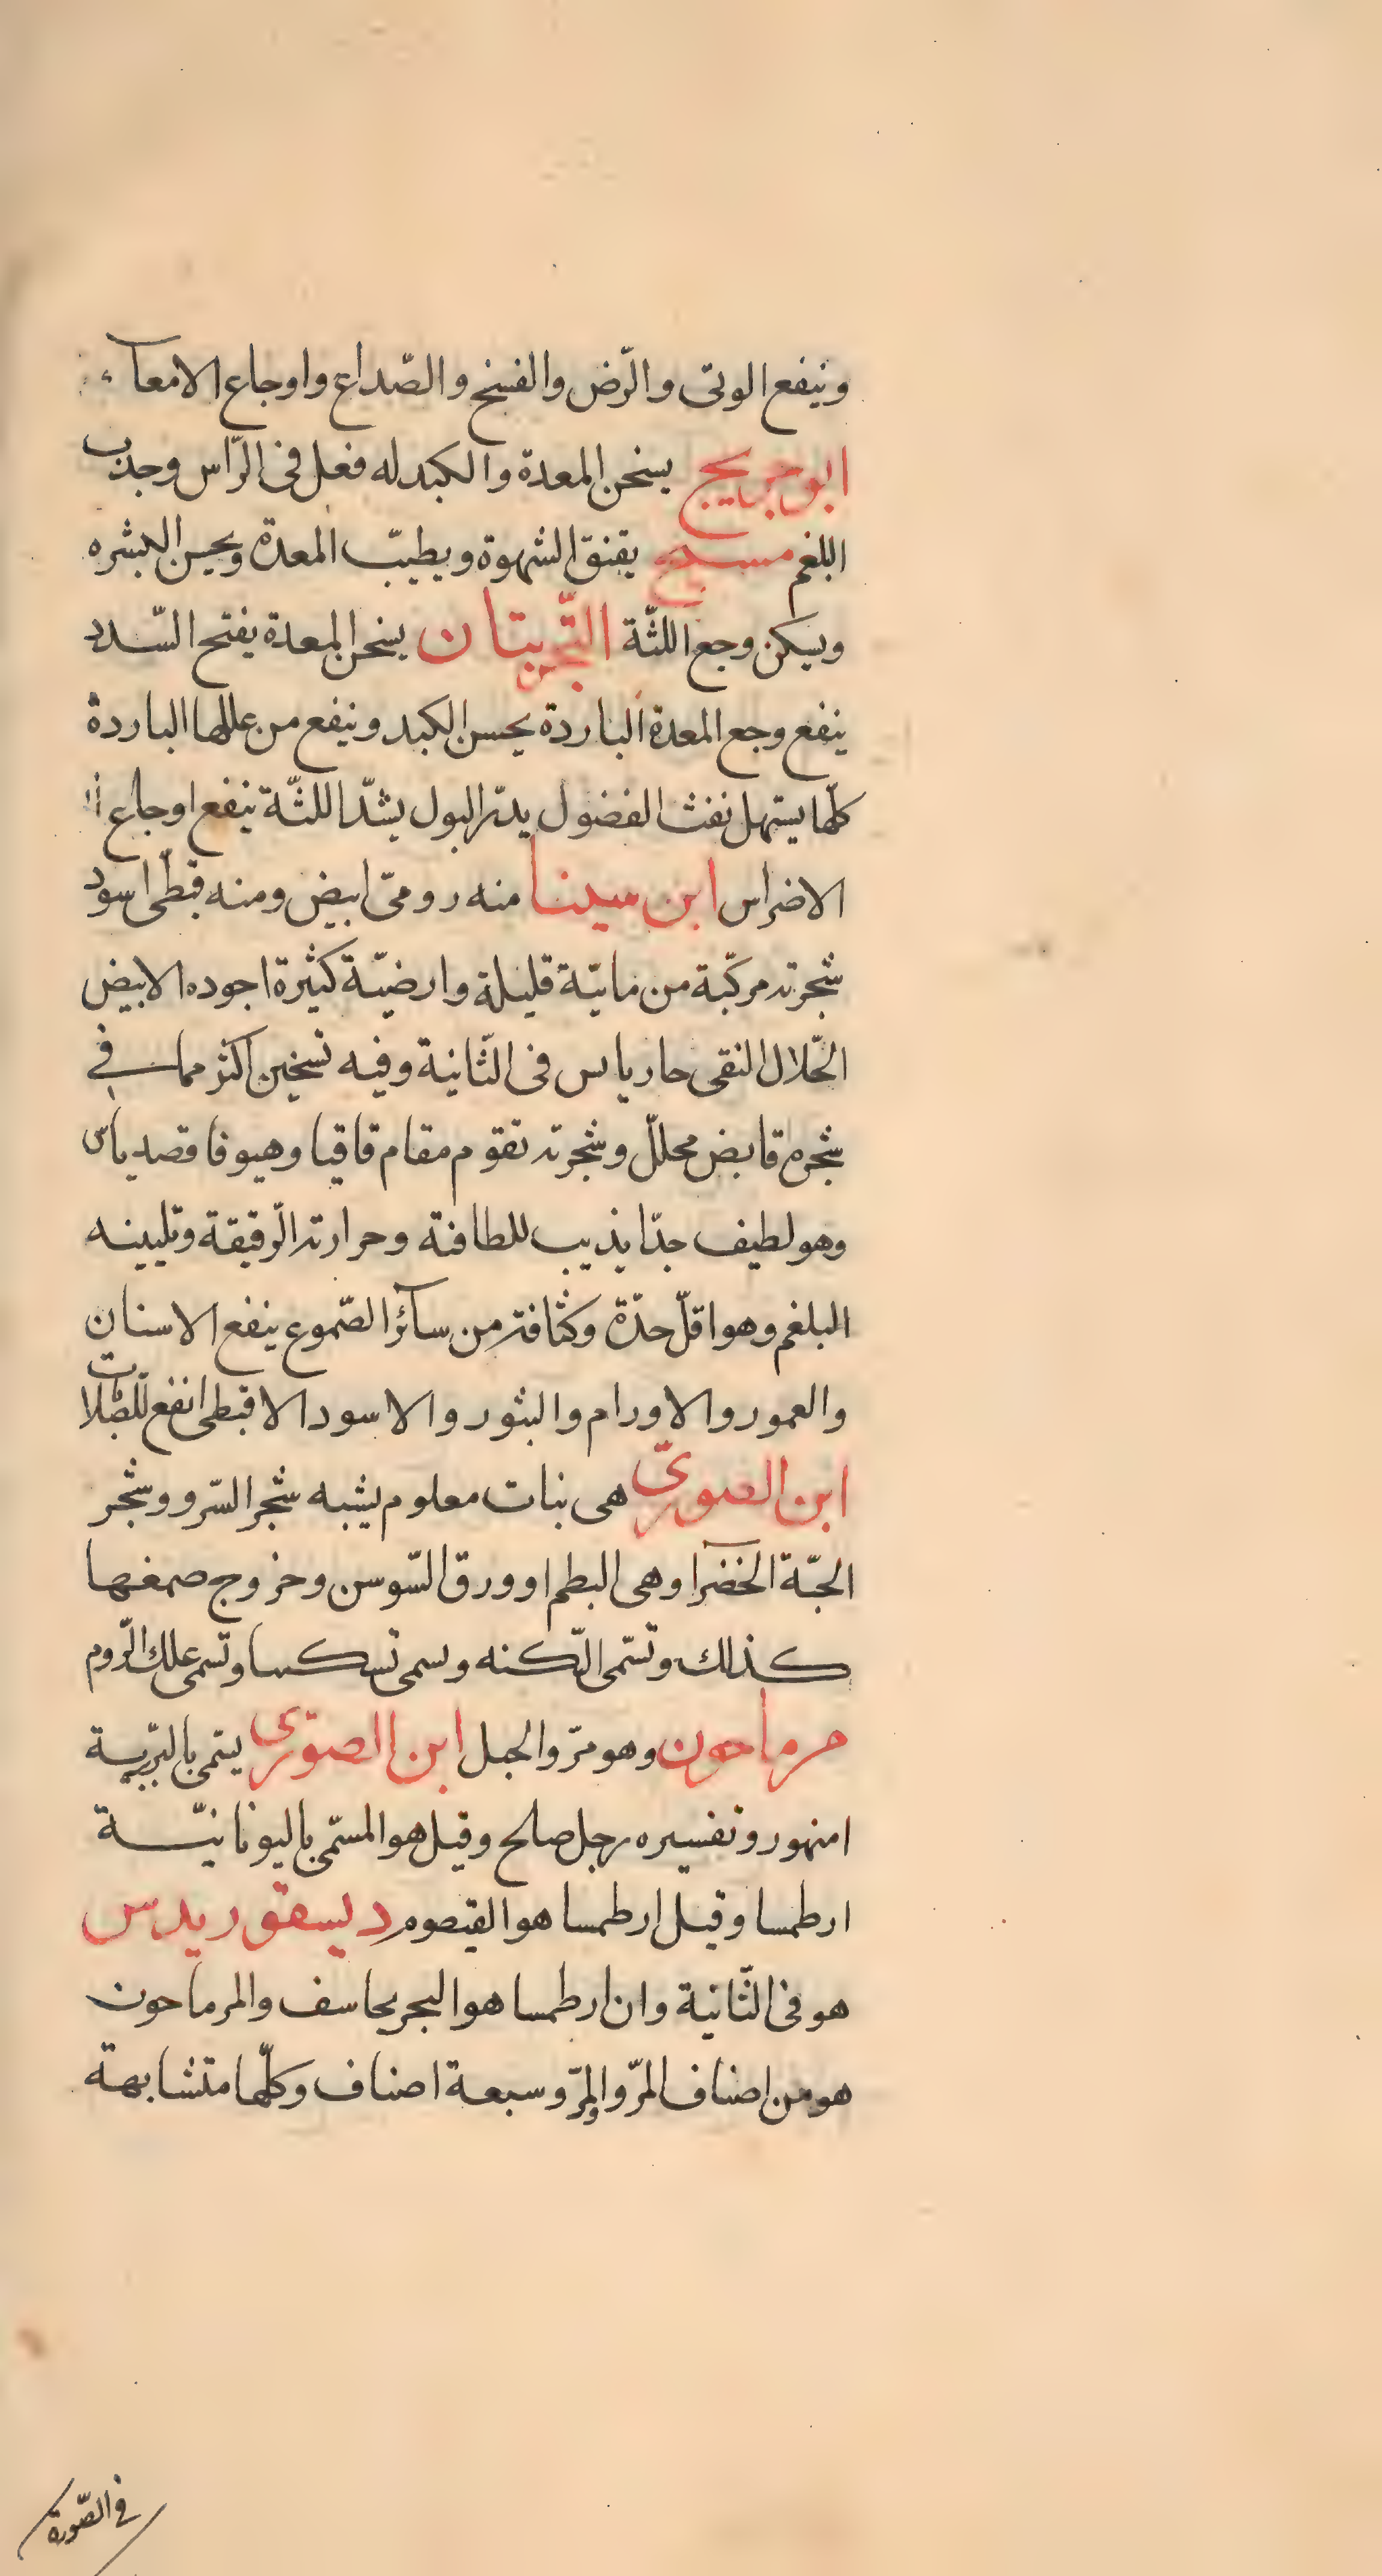 وينفع الوثى والرّض والفسخ والصّداع واوجاع الامعآء
ابو جريج يسخن المعدة والكبد له فعل فى الرّاس وجذب
البلغم مسيح يفتق الشهوة ويطيّب المعدة ويحسن البشره
ويسكن وجع اللثّة التّجربتان يسخن المعدة يفتح السّدد
ينفع وجع المعدة الباردة يحسن الكبد وينفع من عللها الباردة
كلّها يسهل نفث الفضول يدرّ البول يشدّ اللثّة ينفع اوجاع
الاضراس ابن سينا منه رومىّ ابيض ومنه قبطى اسود
شجرته مركّبة من مائيّة قليلة وارضيّة كثيرة اجوده الابيض
الحّلال النقى حار يابس فى الثّانية وفيه تسخين اكثر مما فى
شجره قابض محللّ وشجرته تقوم مقام قاقيا وهيوفاقصدياس
وهو لطيف جدّا يذيب للطافته وحرارته الرّقيقة وتليينه
البلغم وهو اقلّ حدّة وكثافة من سآئر الصّموغ ينفع الاسنان
والعمور والاورام والبثور والاسود الاقبطى انفع للصّلابات
ابن الصورىّ هى نبات معلوم يشبه شجر السّرو وشجر
الحبّة الخضرآ وهى البطم او ورق السّوسن وخروج صمغها
كذلك وتسّمى وسمى وتسمى علك الرّوم
مرماحون وهو مرّو الجبل ابن الصوّرى يسّمى
امنهور وتفسيره رجل صالح وقيل هو المسّمى باليونانيّة
ارطمسا وقيل ارطمسا هو القيصوم ديسقوريدس
هو فى الثّانية وان ارطمسا هو البجرنحاسف والمرماحون
هو من اصناف المرّو والمرّو سبعة اصناف وكلّها متشابهة
فى الصّورة